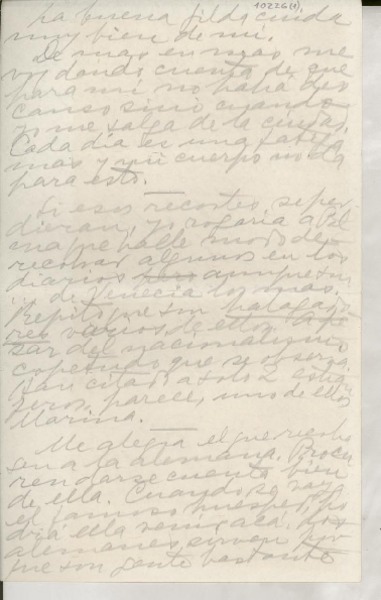 10226(1),
La buena Gilda cuida
muy bien de mí.
De mas en mas me
voy dando cuenta de que
para mí no habrá des-
canso sino cuando
yo me salga de la ciudad.
Cada día es una fatiga
mas y mi cuerpo no da
para esto.
Si esos recortes se per-
dieran, yo rogaría a Pal-
ma que halle modo de
recobrar algunos en los
diarios aunque sean
de Venecia los mas.
Repito que son halagado-
res varios de ellos. A pe-
sar del nacionalismo
que se observa.
Han citado a solo 2 extran-
jeros, parece, uno de ellos
Marina.
Me alegra el que
en a la alemana. Procu-
ren darse cuenta bien
de ella. Cuando se vaya
el famoso huesped, po-
drá ella venir acá. Los
alemanes sirven por-
que son gente bastante